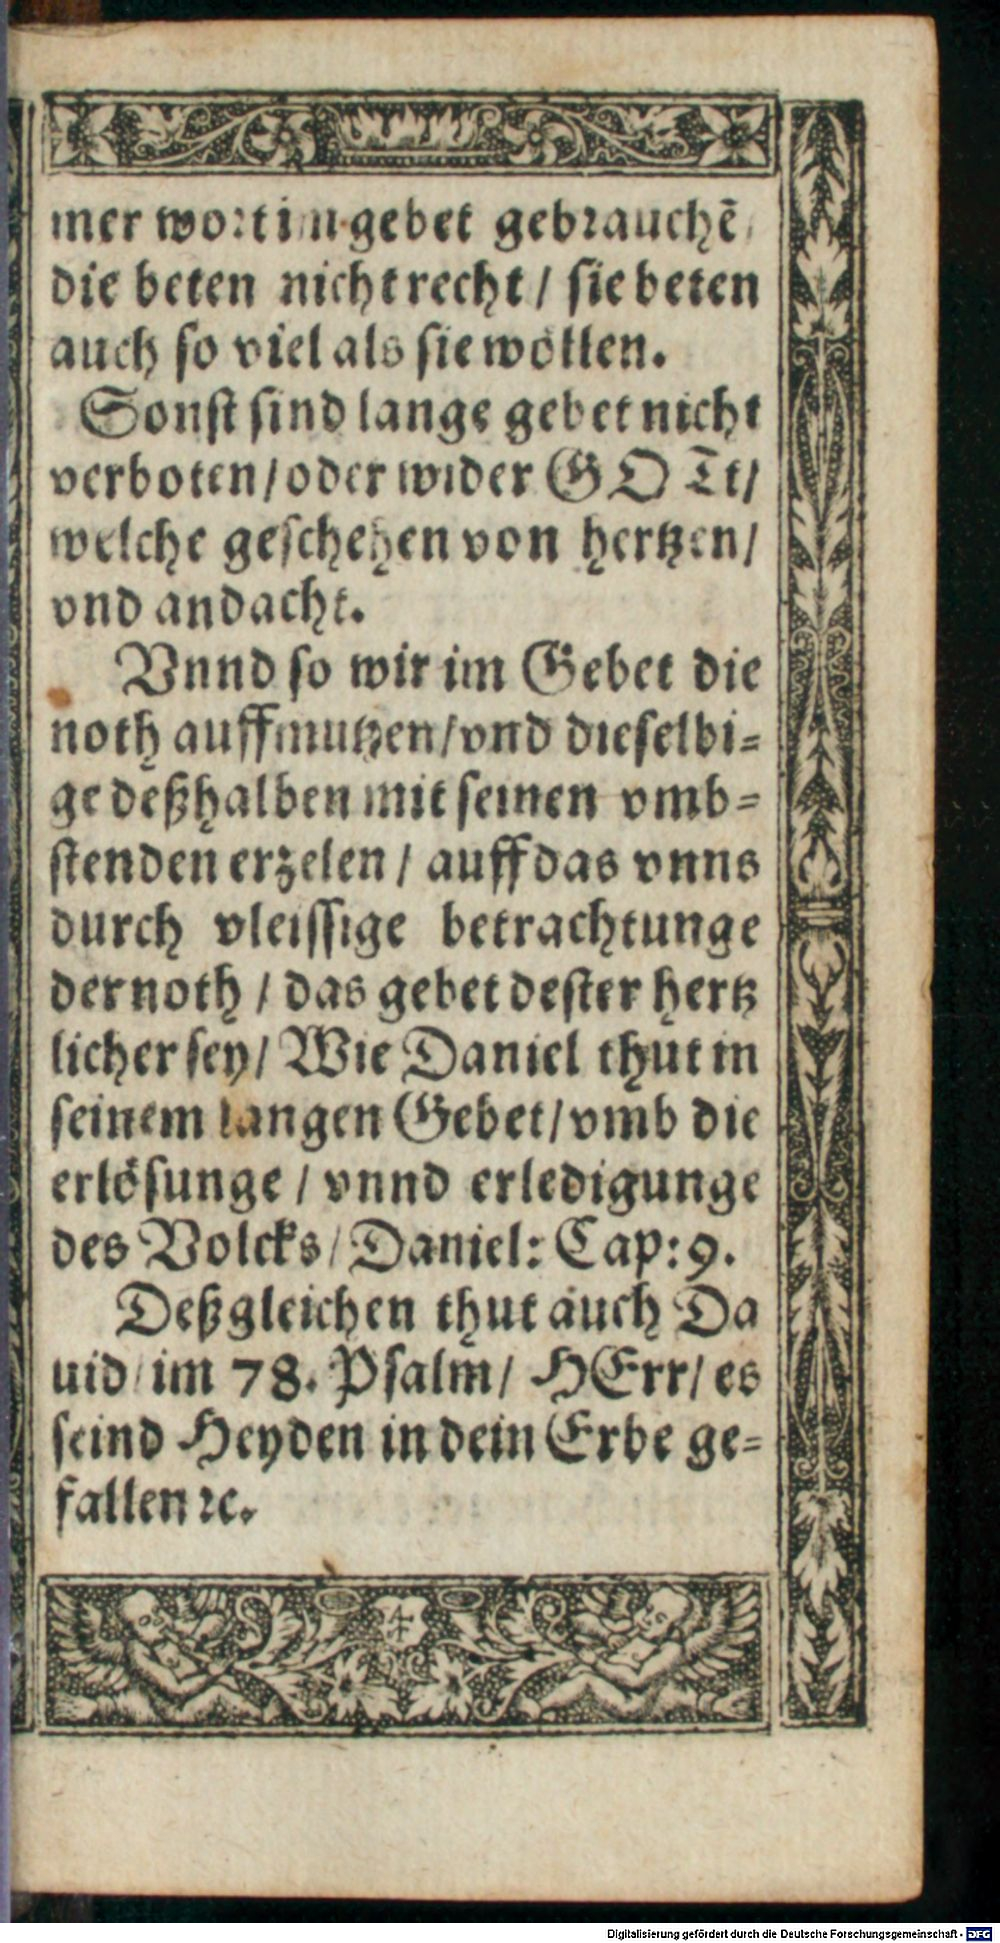 mer wort im gebet gebrauchē/
die beten nicht recht / sie beten
auch so viel als sie wöllen.
Sonst sind lange gebet nicht
verboten/ oder wider GOTt/
welche geschehen von hertzen/
vnd andacht.
Vnnd so wir im Gebet die
noth auffmutzen/ vnd dieselbi-
ge deßhalben mit seinen vmb-
stenden erzelen / auff das vnns
durch vleissige betrachtunge
der noth / das gebet dester hertz
licher sey/ Wie Daniel thut in
seinem langen Gebet/ vmb die
erlösunge / vnnd erledigunge
des Volcks/ Daniel: Cap: 9.
Deßgleichen thut auch Da
uid/ im 78. Psalm/ HErr/ es
seind Heyden in dein Erbe ge-
fallen ꝛc.
Digitalisierung gefördert durch die Deutsche Forschungsgemeinschaft - DFG